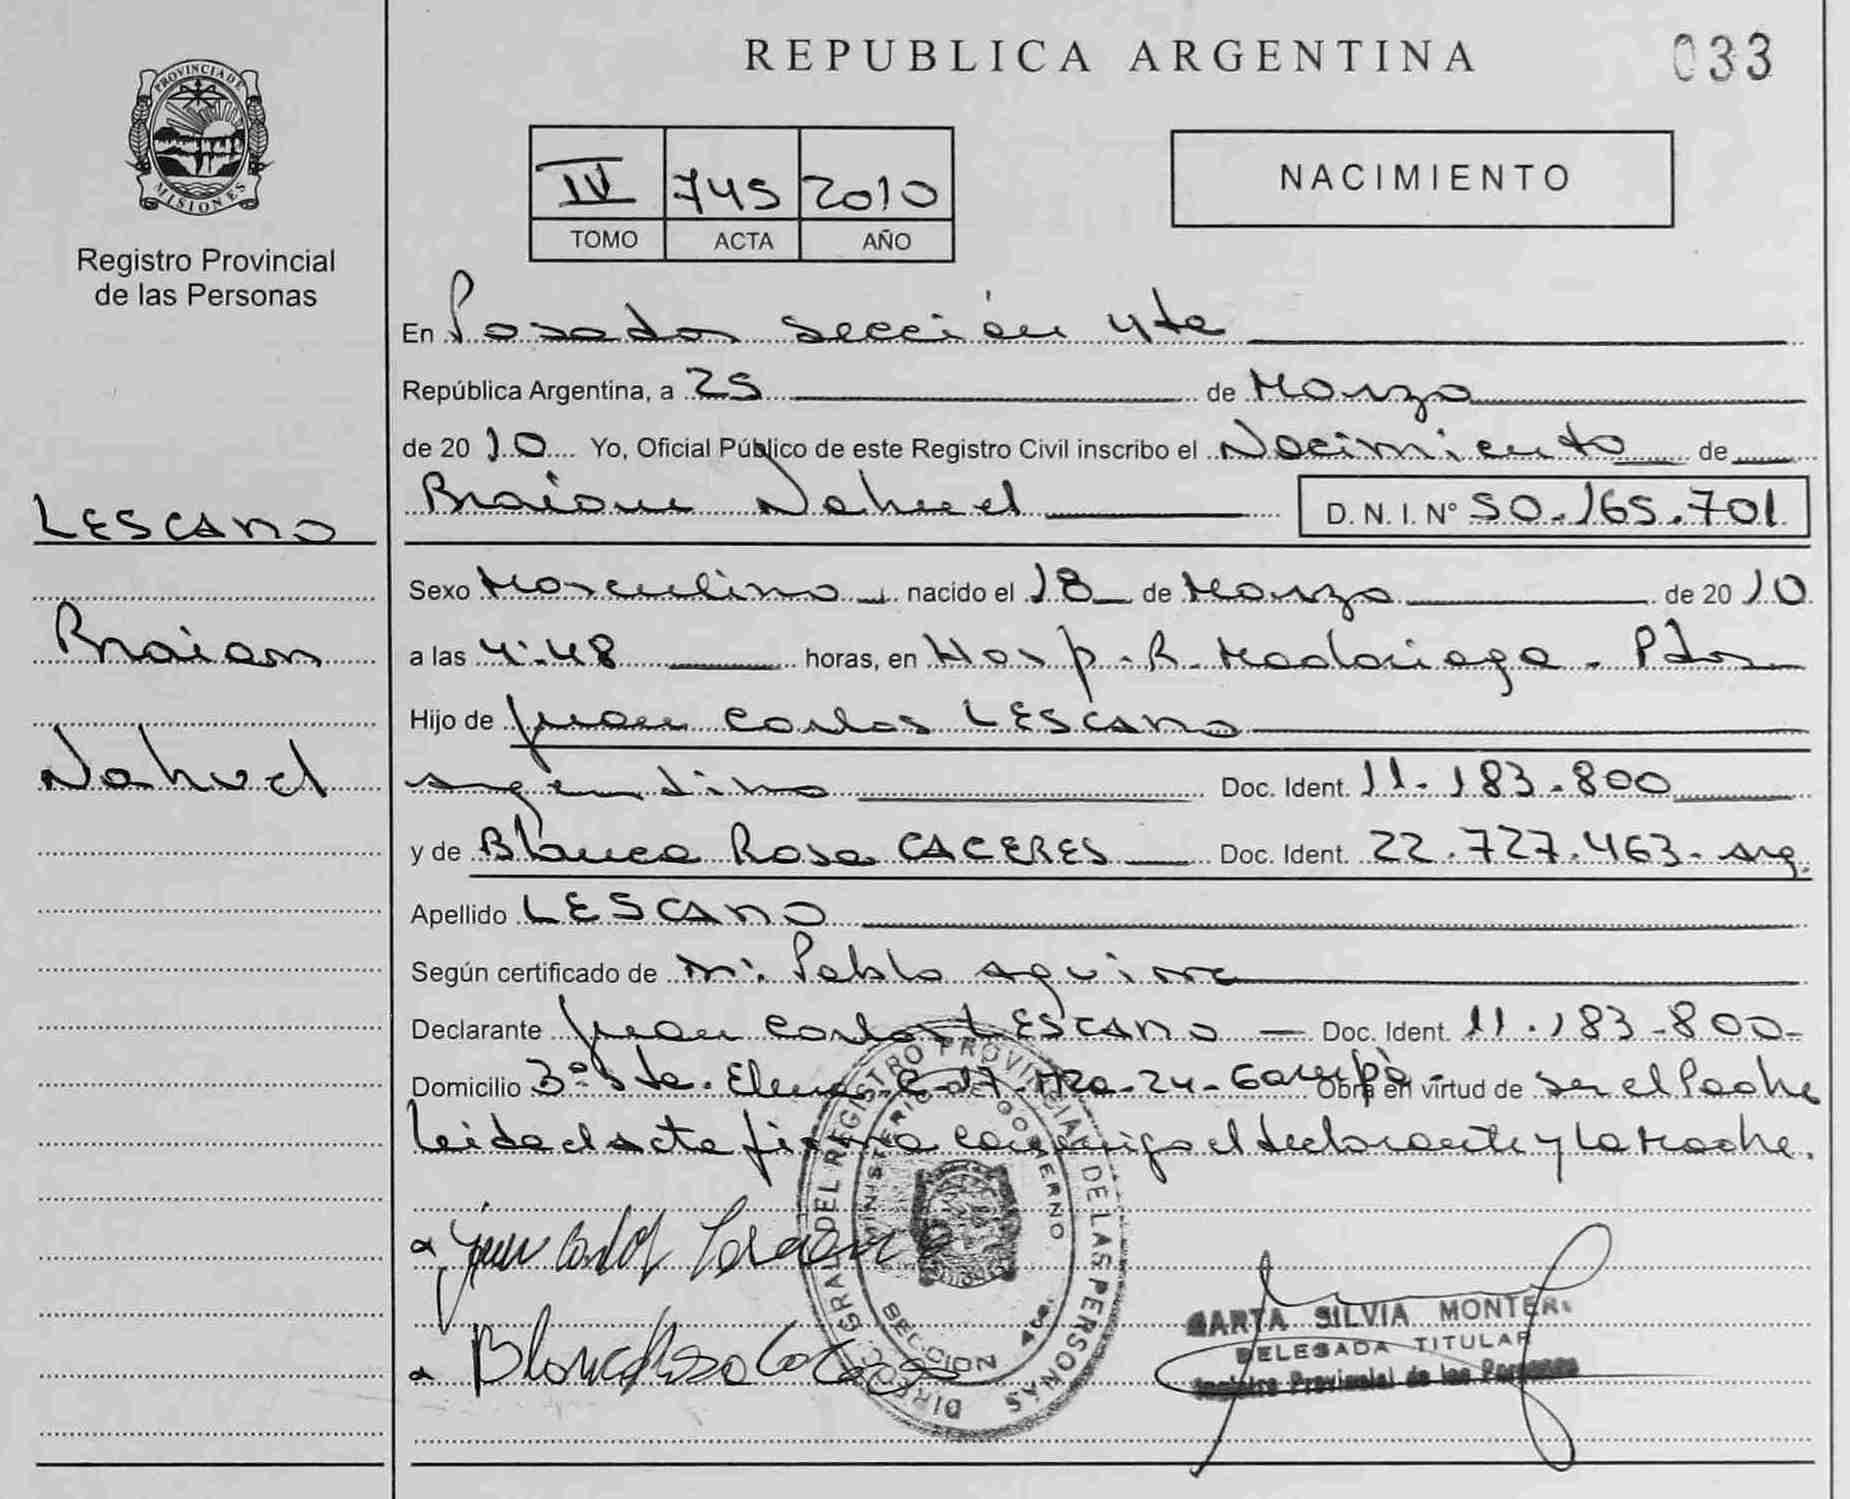 REPUBLICA ARGENTINA
033
PROVINCIA DE
MISIONES
Registro Provincial
de las Personas
IV 745 2010
TOMO ACTA AÑO
NACIMIENTO
LESCANO
Braian
Nahuel
En Posadas Sección 4ta
República Argentina, a 25 de Marzo
de 2010 Yo, Oficial Público de este Registro Civil inscribo el Nacimiento de
Braian Nahuel D. N. I. N° 50.165.701
Sexo Masculino nacido el 18 de Marzo de 2010
a las 4:48 horas, en Hosp. R. Madariaga - Pdas
Hijo de Juan Carlos LESCANO
argentino Doc. Ident. 11.183.800
y de Blanca Rosa CACERES Doc. Ident. 22.727.463 - arg.
Apellido LESCANO
Según certificado de Pablo Aguirre
Declarante Juan Carlos LESCANO Doc. Ident. 11.183.800-
Domicilio Sta. Elena 24 - Garupá Obra en virtud de ser el Padre
Leida el acta firma conmigo el declarante y la Madre.
Juan Carlos Lescano
Blanca Rosa Caceres
DIRECC. GRAL. DEL REGISTRO PROVINCIAL DE LAS PERSONAS
MINISTERIO DE GOBIERNO
SECCION 4ta.
MARTA SILVIA MONTER
DELEGADA TITULAR
Registro Provincial de las Personas